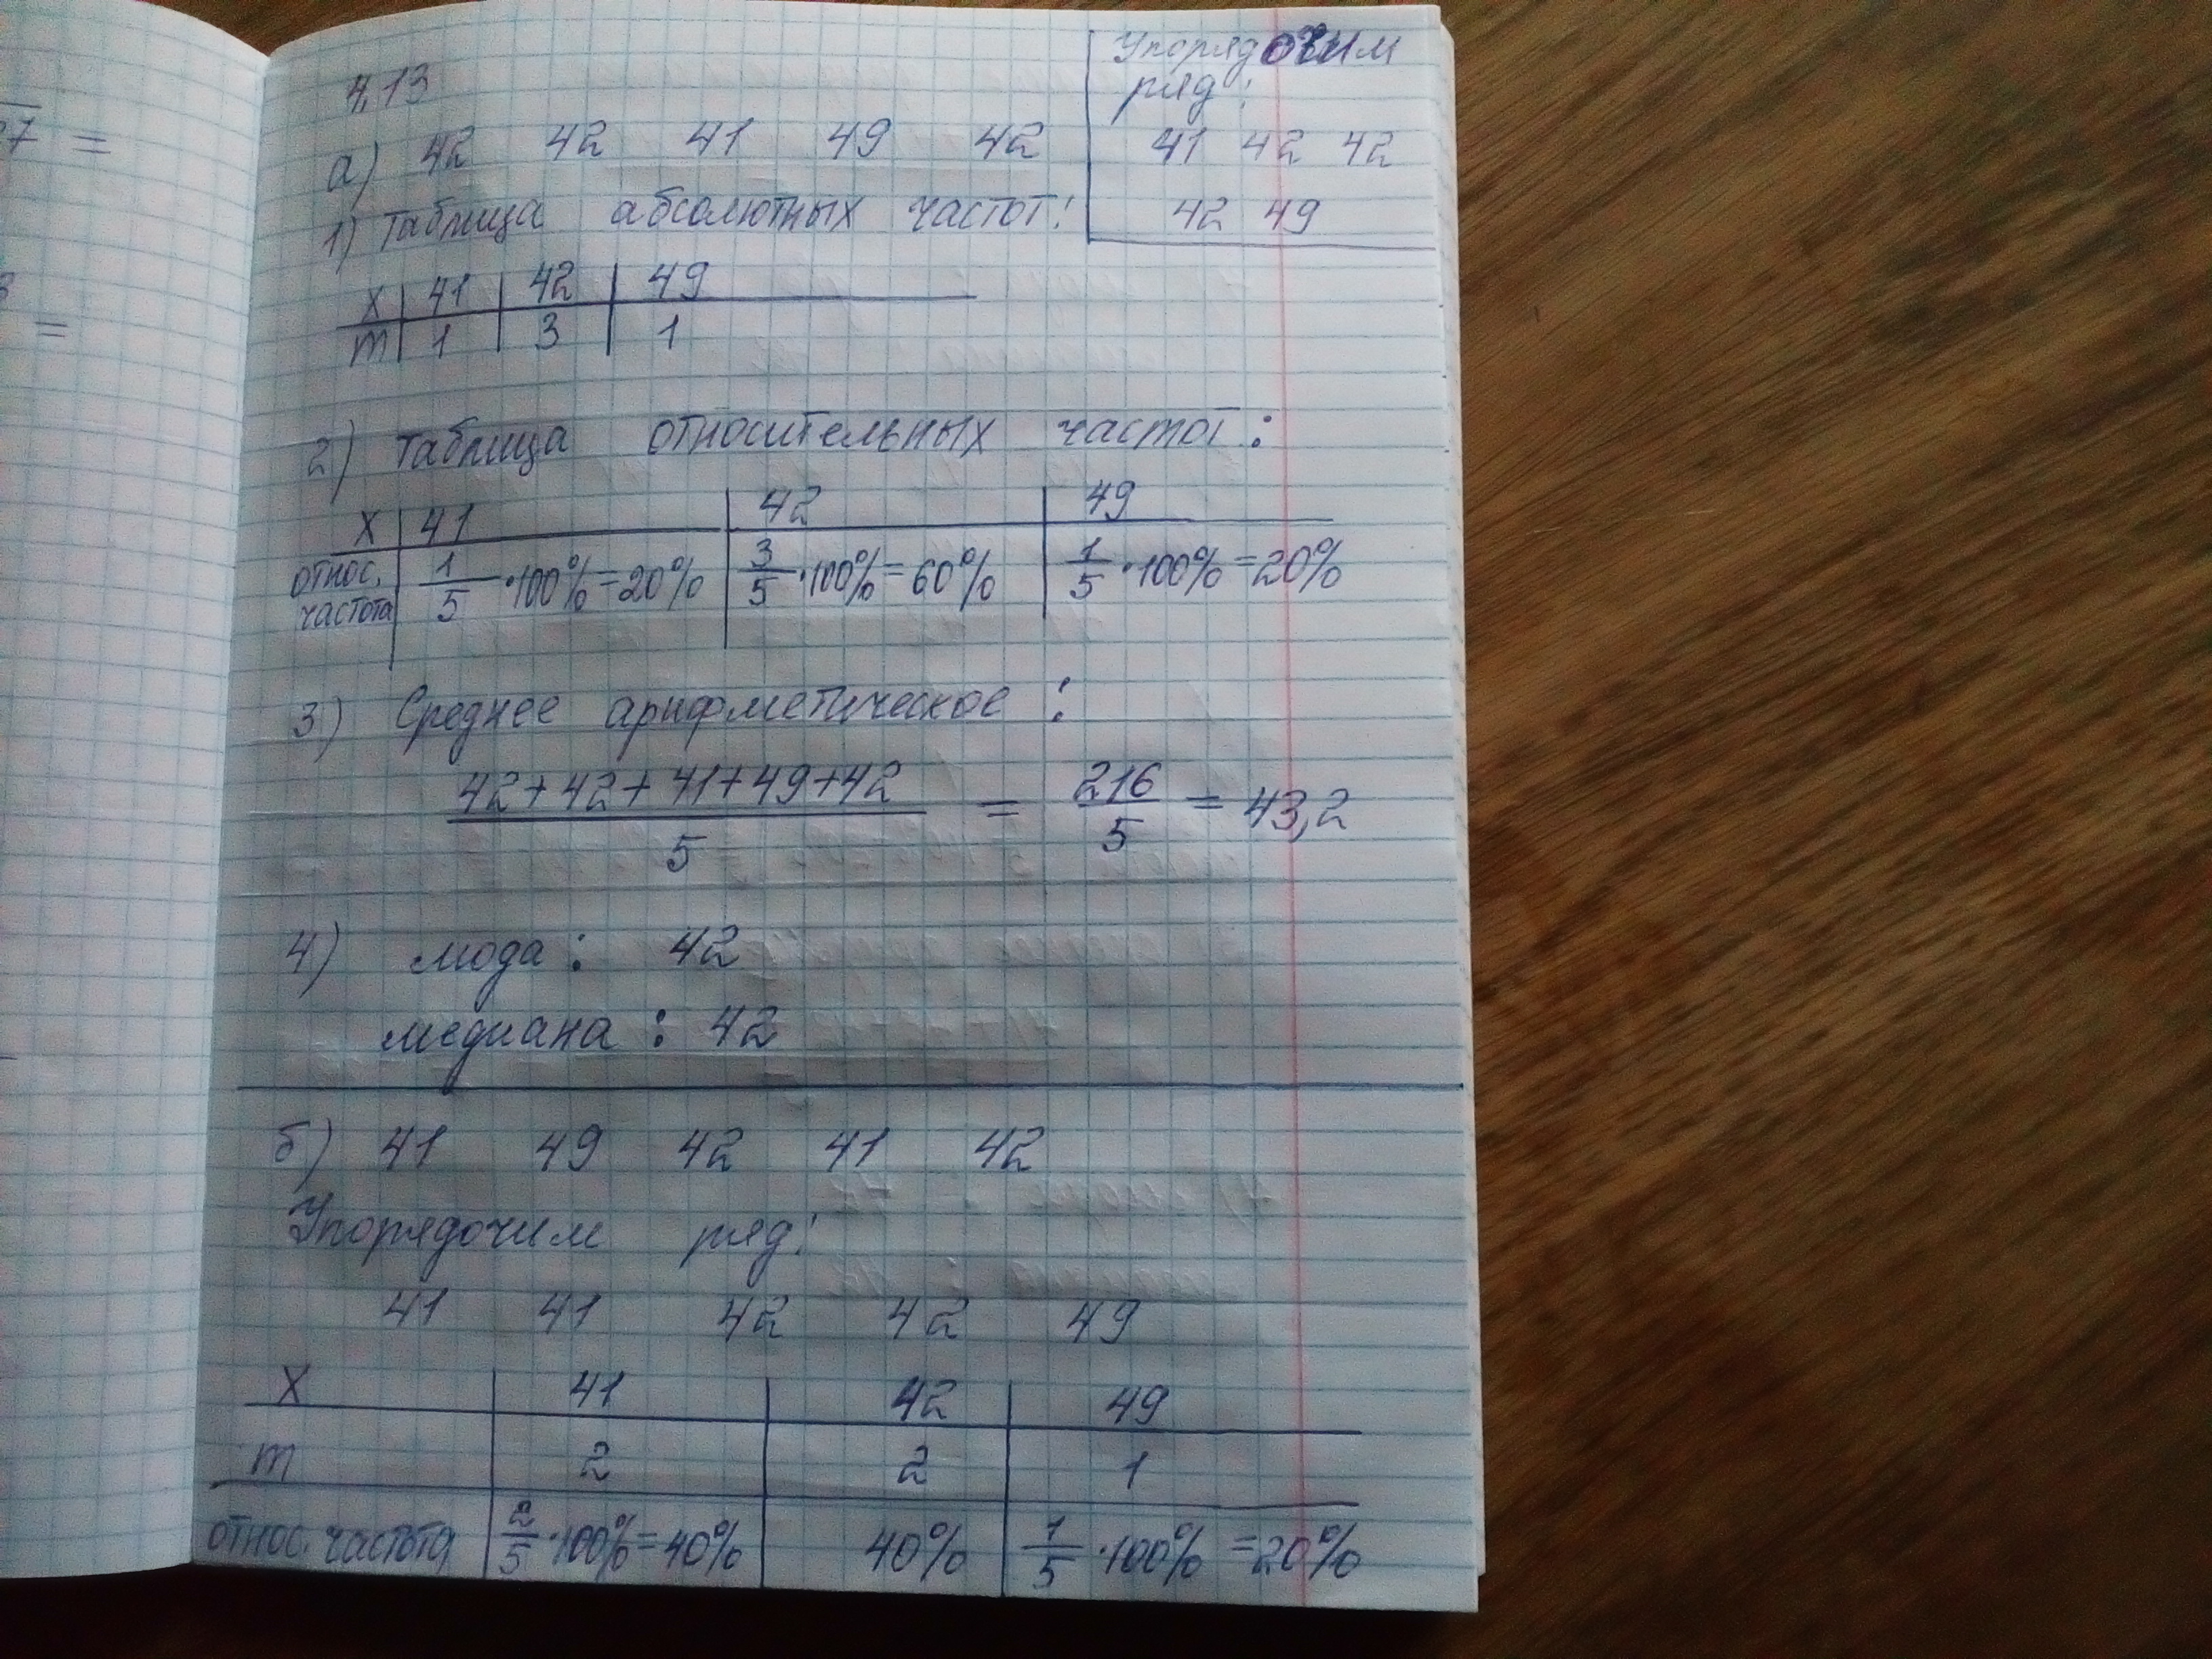 4.13
Упорядочим
ряд:
а) 42 42 41 49 42
41 42 42
42 49
1) таблица абсолютных частот:
x 41 42 49
m 1 3 1
2) таблица относительных частот:
x 41 42 49
относ. частота 1/5 · 100% = 20% 3/5 · 100% = 60% 1/5 · 100% = 20%
3) Среднее арифметическое:
42 + 42 + 41 + 49 + 42 / 5 = 216/5 = 43,2
4) мода: 42
медиана: 42
б) 41 49 42 41 42
Упорядочим ряд:
41 41 42 42 49
x 41 42 49
m 2 2 1
относ. частота 2/5 · 100% = 40% 40% 1/5 · 100% = 20%